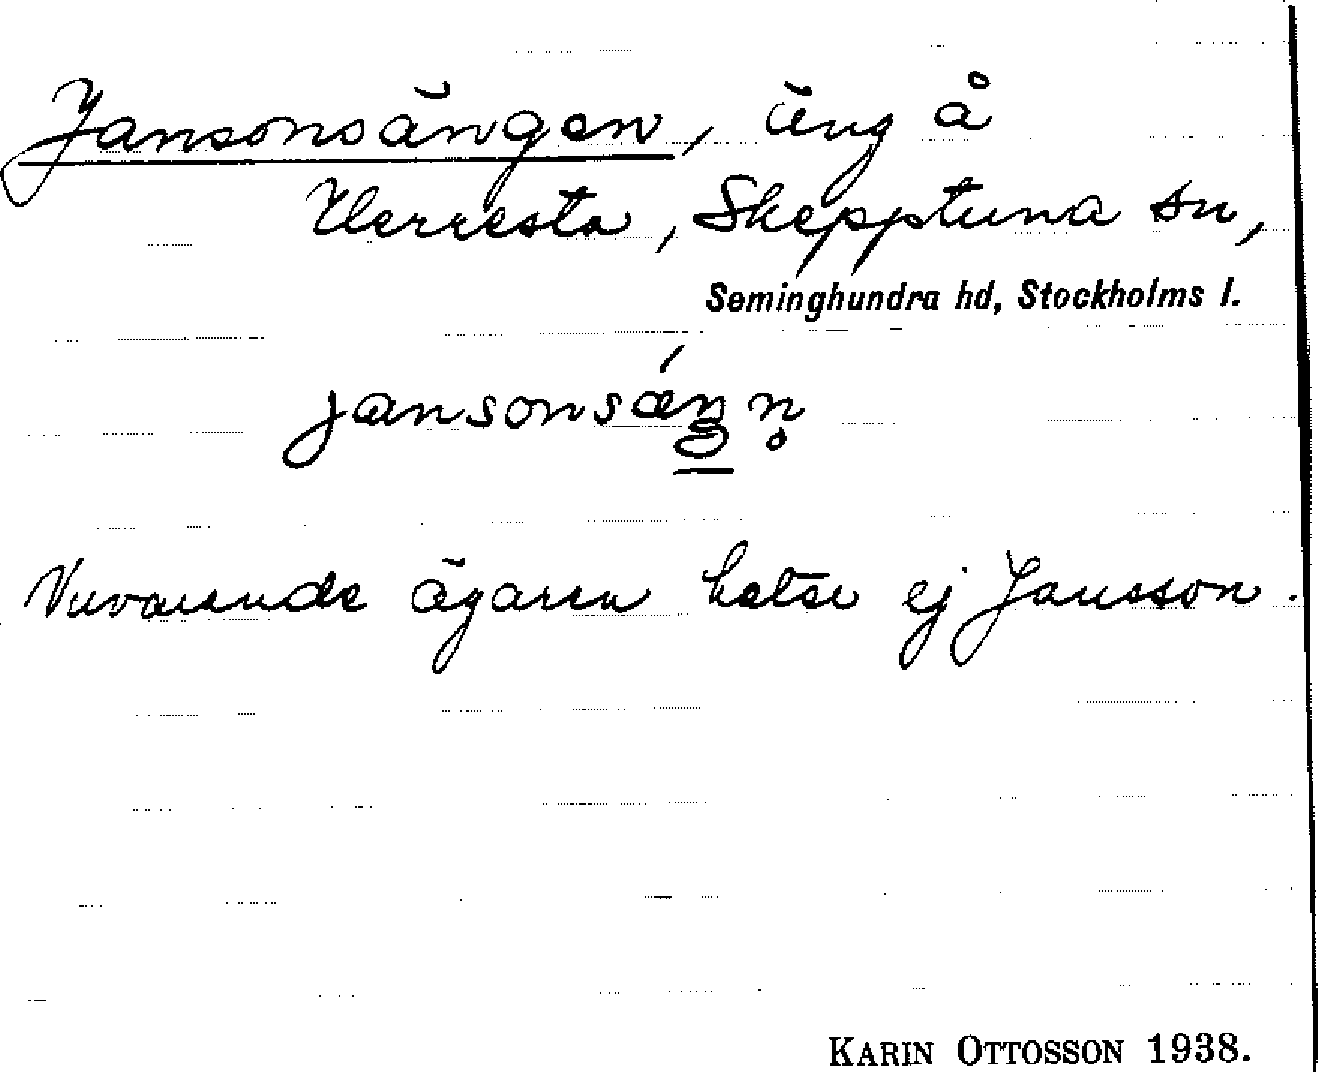 Jansonsängen, äng å
Herresta, Skepptuna sn,
Seminghundra hd, Stockholms l.
jansonsǽŋn̥
Nuvarande ägaren heter ej Jansson.
KARIN OTTOSSON 1938.